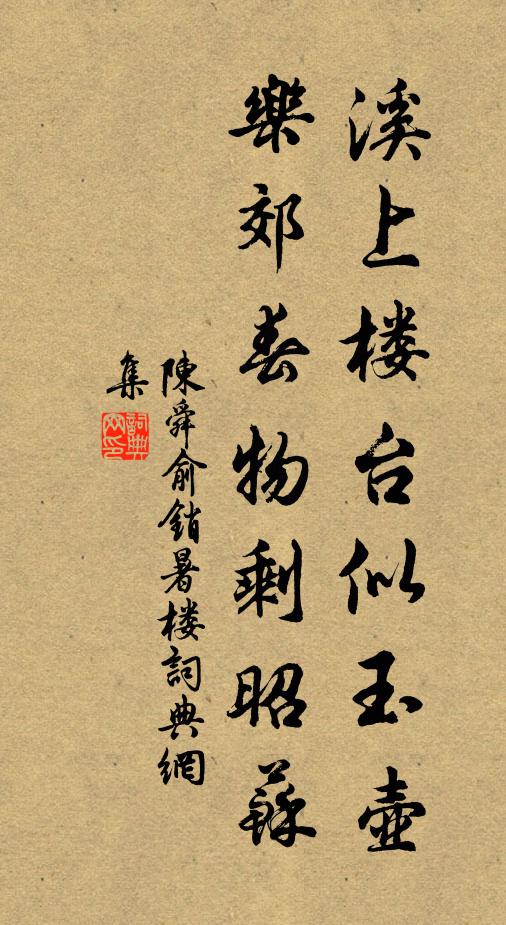 溪上楼台似玉壺
樂郊春物剩昭蘇
陳舜俞銷暑楼詞典網
集
詞典網印